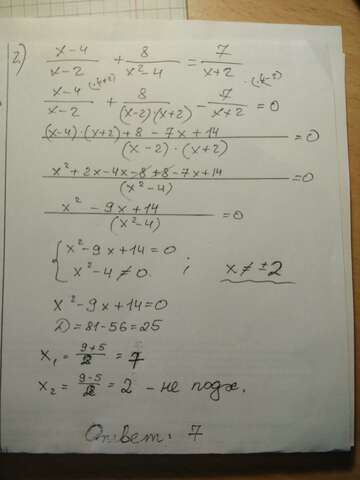 2) (x-4)/(x-2) + 8/(x²-4) = 7/(x+2)
(x-4)/(x-2) (·x+2) + 8/((x-2)·(x+2)) - 7/(x+2) (·x-2) = 0
((x-4)·(x+2)+8-7x+14)/((x-2)·(x+2)) = 0
(x²+2x-4x-8+8-7x+14)/(x²-4) = 0
(x²-9x+14)/(x²-4) = 0
{ x²-9x+14=0
x²-4≠0. ; x≠±2
x²-9x+14=0
D=81-56=25
x₁ = (9+5)/2 = 7
x₂ = (9-5)/2 = 2 - не подх.
Ответ: 7